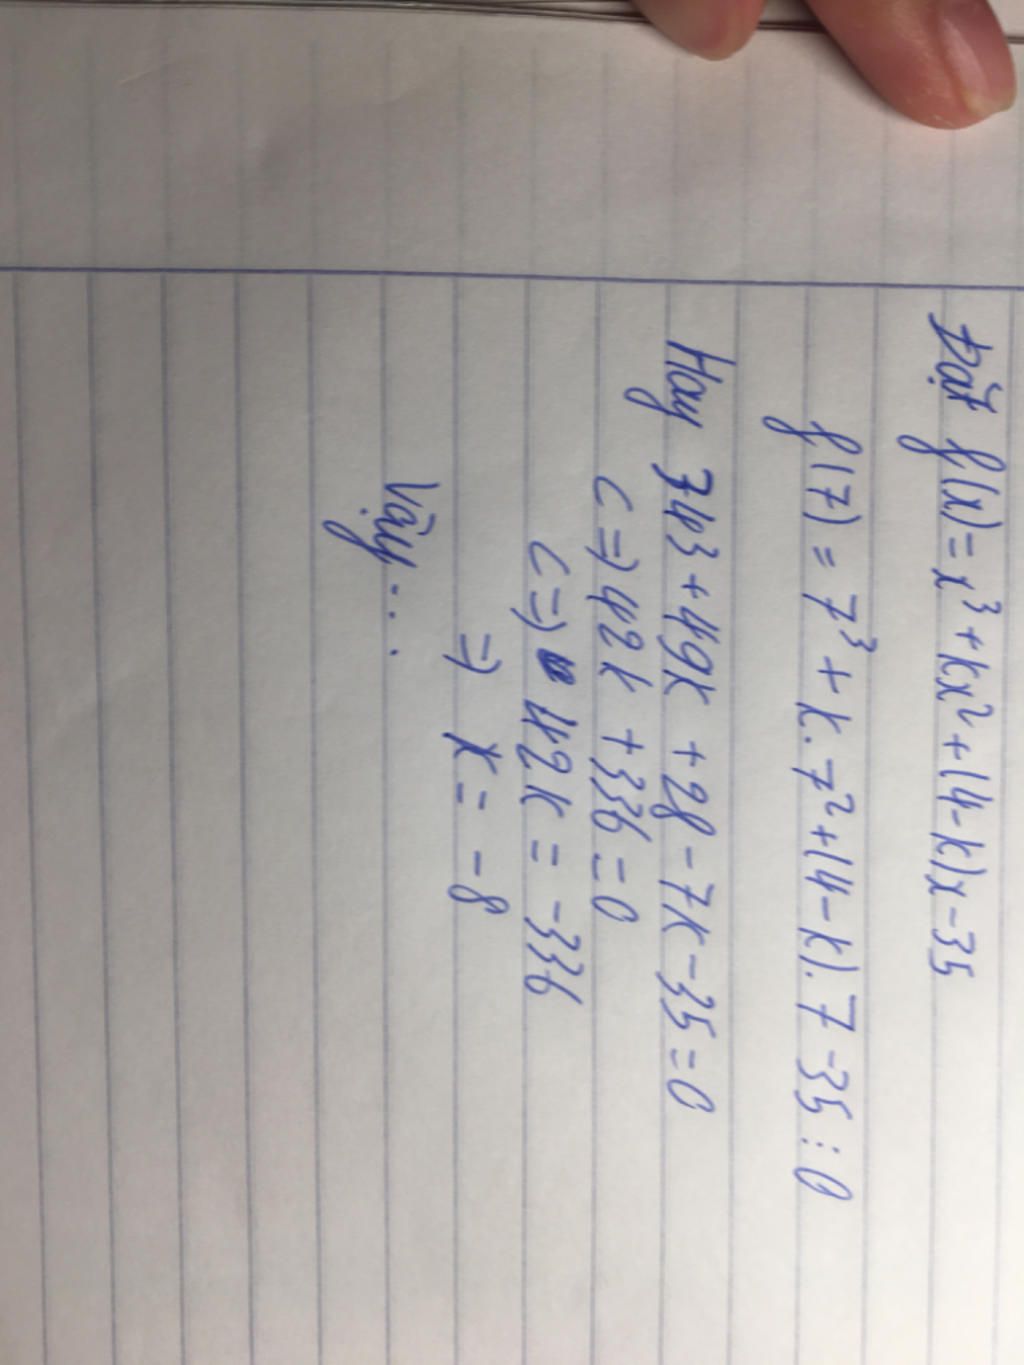 Đặt f(x) = x³ + kx² + (4 - k)x - 35
f(7) = 7³ + k.7² + (4 - k).7 - 35 : 0
Hay 343 + 49k + 28 - 7k - 35 = 0
<=> 42k + 336 = 0
<=> 42k = -336
=> k = -8
Vậy...